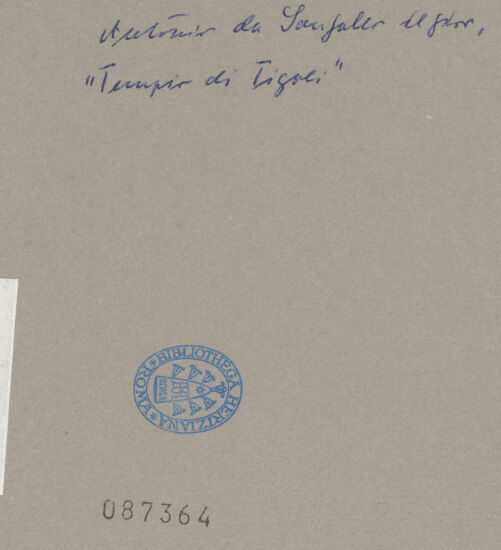 Antonio da Sangallo il giov.,
"Tempio di Tigoli"
BIBLIOTHECA HERTZIANA * ROMA *
ROMA
087364